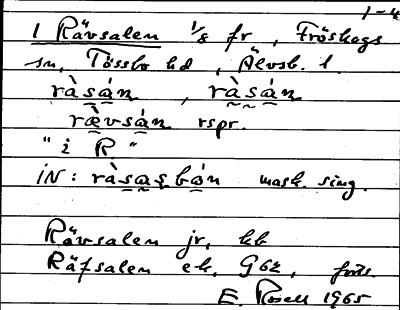 1-4
1 Rävsalen 1/8 fr, Fröskogs
sn, Tössbo hd, Älvsb. l.
rằsán, rằsán
rǽvsán rspr.
"i R"
iN: rằsasbon mask. sing.
Rävsalen jr, kb
Räfsalen ek. G62, forts.
E. Rosell 1965